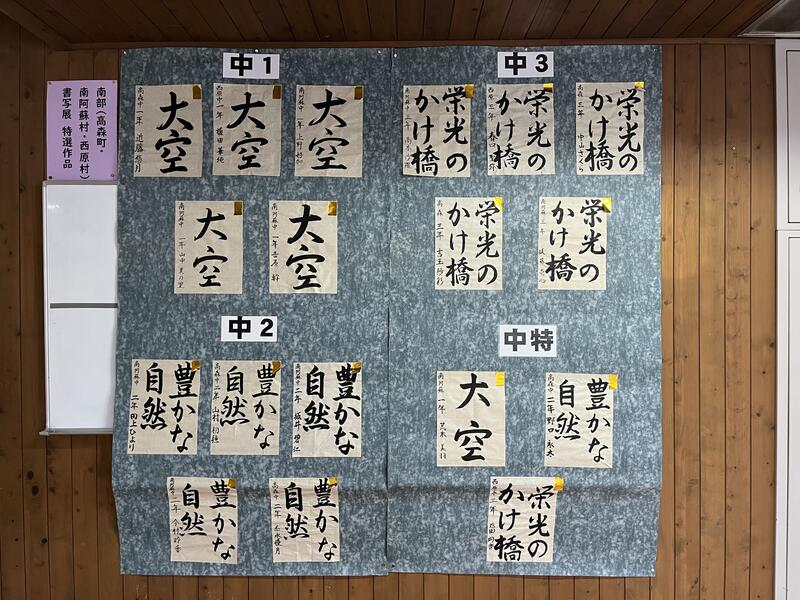 南部（高森町・
南阿蘇村・西原村）
書写展 特選作品
中1
大空
高森中 一年 近藤悠月
大空
西原中 一年
大空
南阿蘇中 一年 上野
大空
南阿蘇中 一年 山中
大空
南阿蘇中 一年
中2
豊かな
自然
南阿蘇中 二年 田上ひより
豊かな
自然
高森中 二年 山村
豊かな
自然
南阿蘇中 二年 坂井
豊かな
自然
南阿蘇中 二年 今村
豊かな
自然
高森中 二年
中3
栄光の
かけ橋
南阿蘇中 三年
栄光の
かけ橋
西原 三年
栄光の
かけ橋
高森 三年 中山さくら
栄光の
かけ橋
高森 三年
栄光の
かけ橋
南阿蘇 三年
中特
大空
南阿蘇 一年 荒木
豊かな
自然
高森中 二年 野口
栄光の
かけ橋
西原中 三年